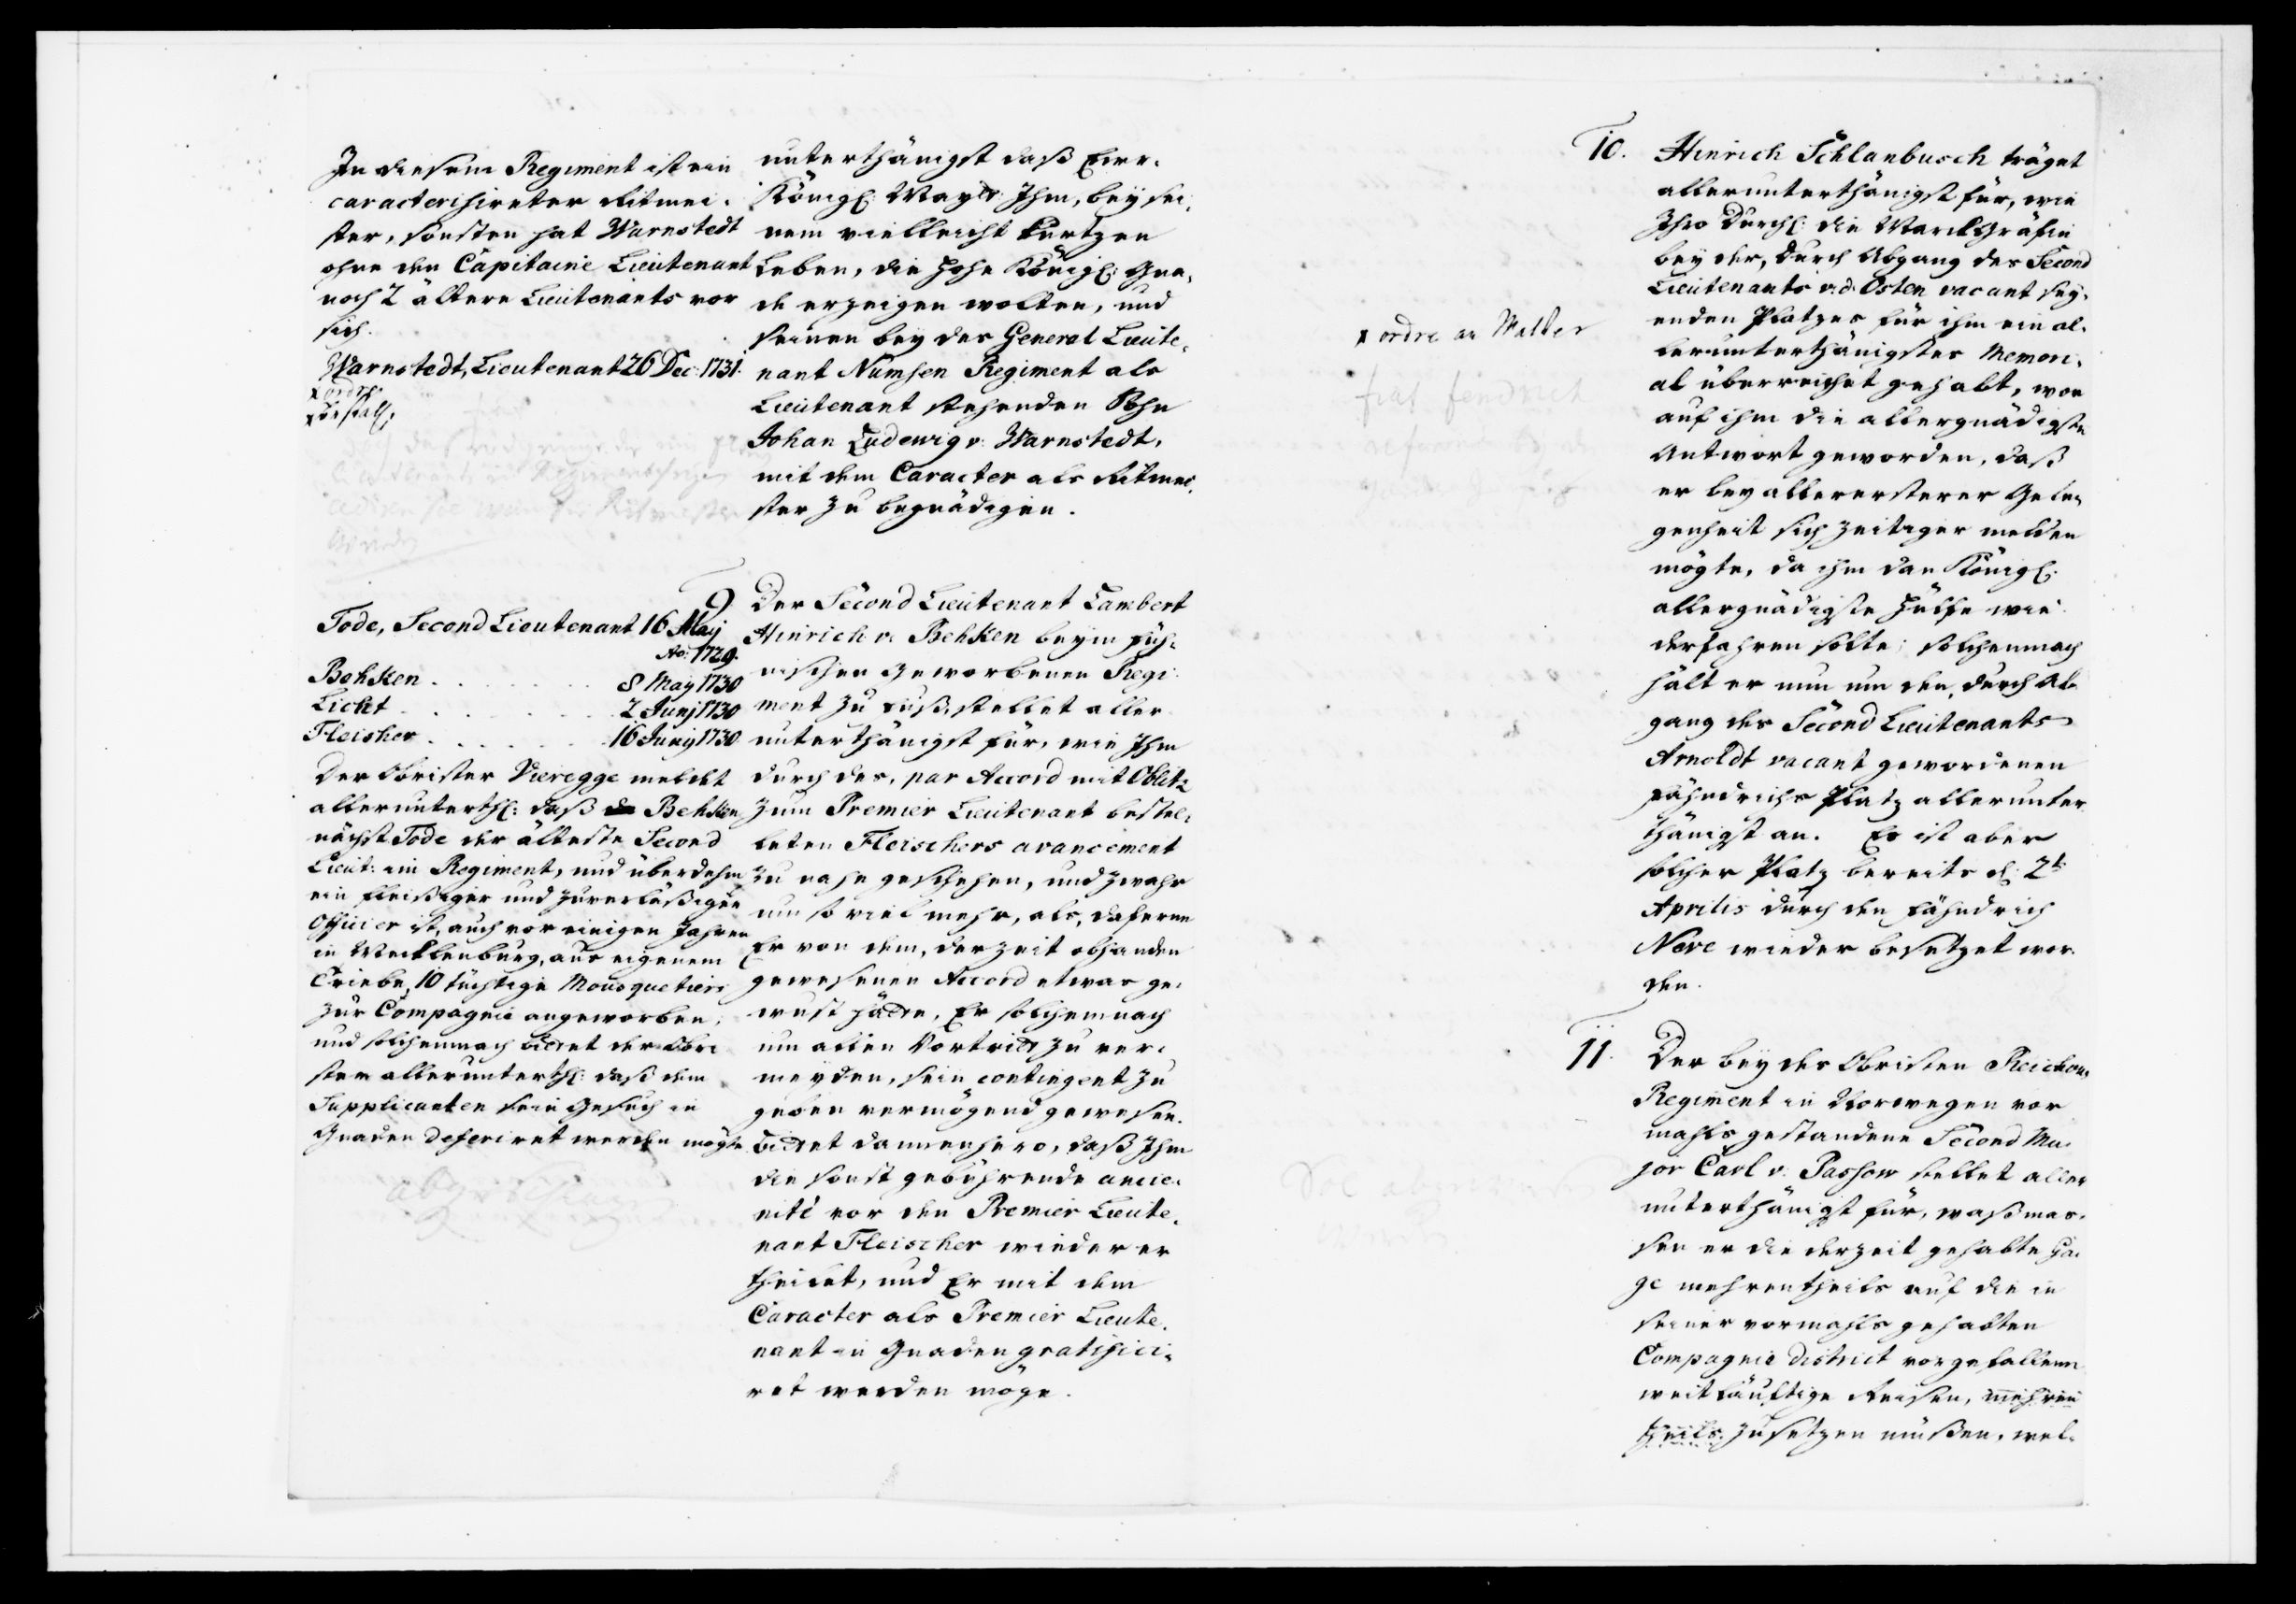 In diesem Regiment ist ein
caracterisireter Ritmei-
ster, sonsten hat Warnstedt
ohne den Capitaine Lieutenant
noch 2 ältere Lieutenants vor
sich.
Warnstedt, Lieutenant 26 Dec: 1731.
x ordre
x Bestall:
unterthänigst daß Ewr.
Königl: Maytt: Ihm, bey sei-
nem vielleicht kurtzen
Leben, die hohe Königl: Gna-
de erzeigen wolten, und
seinen bey des General Lieute-
nant Numsen Regiment als
Lieutenant stehenden Sohn
Johan Ludewig v: Warnstedt,
mit dem Caracter als Ritmei-
ster zu begnädigen.
9
Tode, Second Lieutenant 16 Maij
Ao: 1729.
Behken . . . . . 8 May 1730
Licht . . . . . 2 Junj 1730
Fleisher . . . . . 16 Junij 1730
Der Obrister Vieregge meldet
allerunterthl: daß Behken
nächst Tode der älteste Second
Lieut: im Regiment, und überdehm
ein fleißiger und zuverläßiger
Officier ist, auch vor einigen Jahren
in Mecklenburg, aus eigenem
Triebe, 10 tüchtige Mousquetiers
zur Compagnie angeworben,
und solchemnach bittet der Obri-
ster allerunterthl: daß dem
Supplicanten sein Gesuch in
Gnaden deferiret werden mögte
Der Second Lieutenant Lambert
Hinrich v. Behken beym Füh-
nischen Geworbenen Regi-
ment zu Fuß, stellet aller
unterthänigst für, wie Ihm
durch des, par Accord mit Oblitz
zum Premier Lieutenant bestel-
leten Fleischers avancement
zu nahe geschehen, und zwahr
um so viel mehr, als, daferne
Er von dem, derzeit obhanden
gewesenen Accord etwas ge-
wust hätte, Er solchemnach
um allen Vortritt zu ver-
meyden, sein contingent zu
geben vermögend gewesen.
bittet dannenhero, daß Ihm
die sonst gebührende ancie-
nité vor den Premier Lieute-
nant Fleischer wieder er
theilet, und Er mit dem
Caracter als Premier Lieute-
nant in Gnaden gratifici-
ret werden möge.
x ordre an
fiat fendrich
10. Hinrich Schlanbusch träget
allerunterthänigst für, wie
Ihro Durchl: die Marckgräfin
bey der, durch Abgang des Second
Lieutenants v. d. Osten vacant sey-
enden Platzes für ihm ein al-
lerunterthänigstes Memori-
al überreichet gehabt, wor
auf ihm die allergnädigste
Antwort geworden, daß
er bey allererster Gele-
genheit sich zeitiger melden
mögte, da ihm dan Königl:
allergnädigste Hülffe wie-
derfahren solte; solchemnach
hält er nun um den, durch Ab-
gang des Second Lieutenants
Arnoldt vacant gewordenen
Fähndrichs Platz allerunter
thänigst an. Es ist aber
solcher Platz bereits d: 2t
Aprilis durch den Fähndrich
Neve wieder besetzet wor-
den.
11. Der bey des Obristen Reichows
Regiment in Norwegen vor
mahls gestandene Second Ma-
jor Carl v. Passow stellet aller
unterthänigst für, waßmas-
sen er die derzeit gehabte Ga-
ge mehrentheils auf die in
seiner vormahls gehabten
Compagnie District vorgefallene
weitläuftige Reisen, mehren
theils zusetzen müßen, wel-